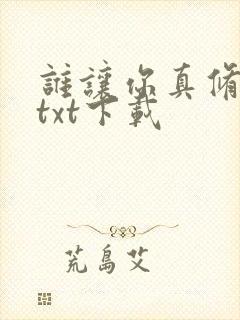 誰讓你真脩
txt下載
荒島艾